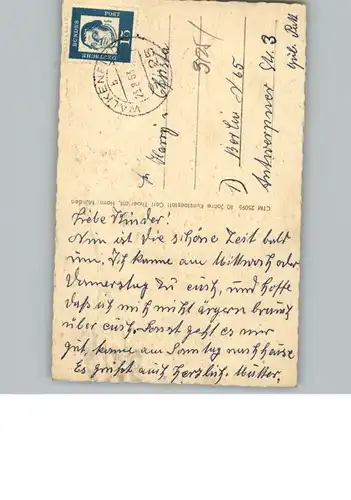 DEUTSCHE
BUNDES
POST
15
WALKENR
24.2.63
Berlin N 65
Antwerpener Str. 3
CTM 25096 80 Jahre Kunstanstalt Carl Thoericht, Hann. Münden
Liebe Kinder!
Nun ist die schöne Zeit bald
um. Ich kanne am Mittwoch oder
Donnerstag zu euch, und hoffe
daß ich mich nicht ärgern brauch
über euch. Sonst geht es mir
gut, kanne am Sonntag nachhause
Es grüßt auch herzlich Mutter,